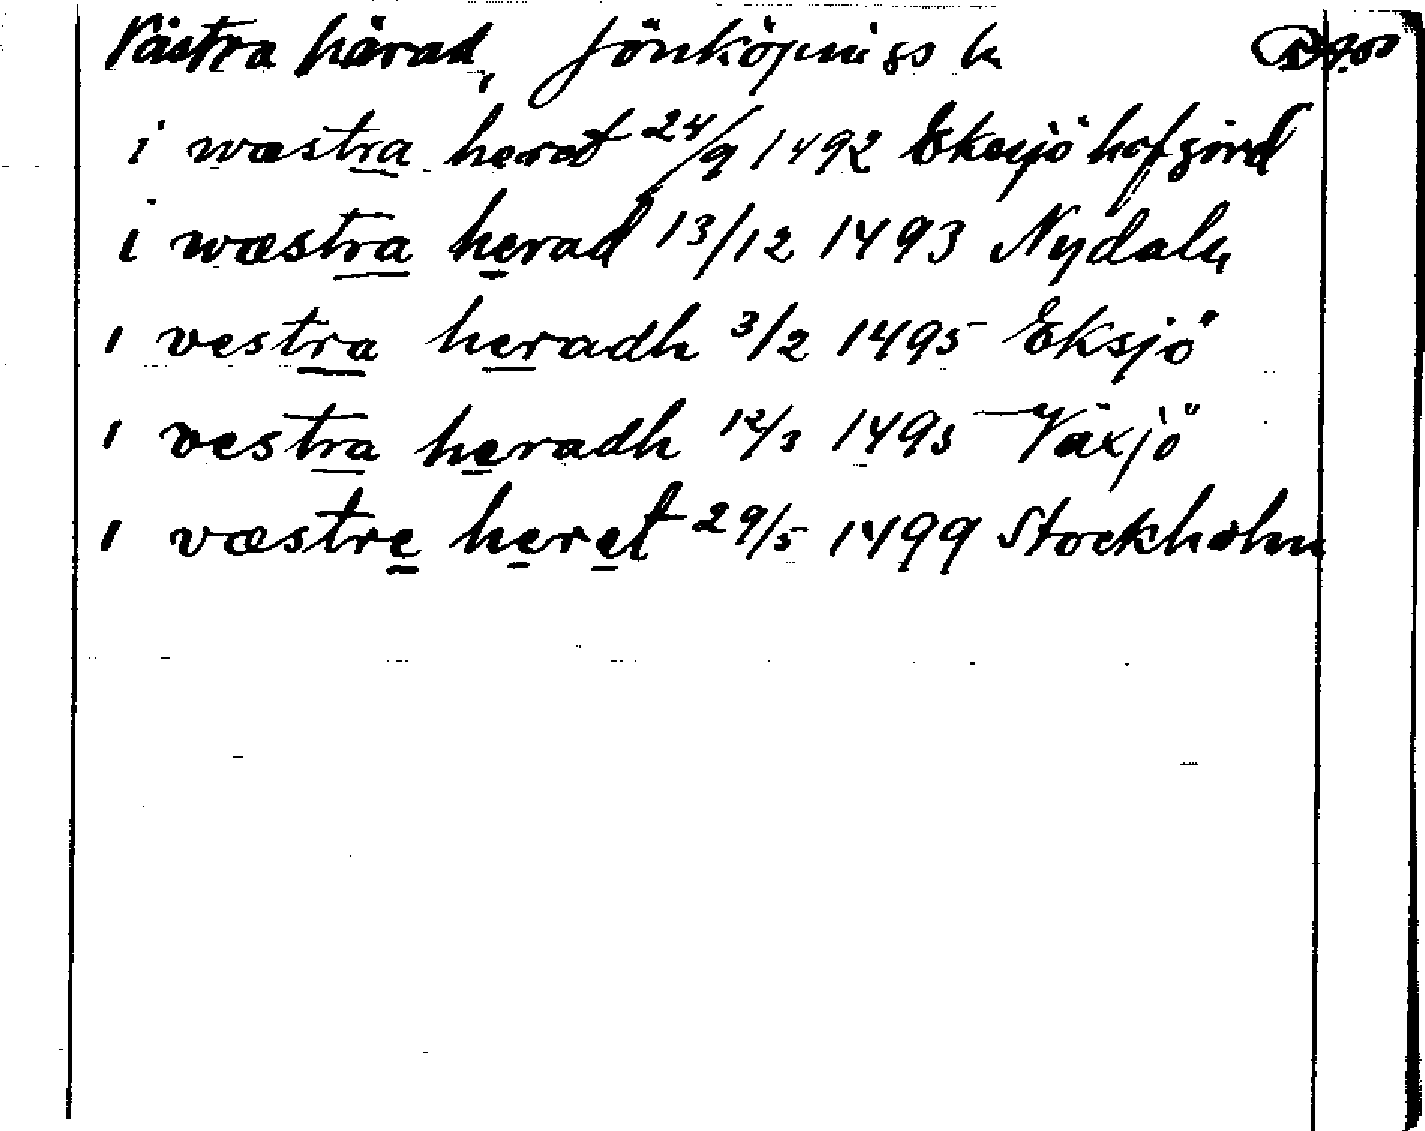 Västra härad, Jönköpings l.
i wæstra herad 24/9 1492 Eksjö hofgård
i wæstra herad 13/12 1493 Nydala
i vestra heradh 3/2 1495 Eksjö
i vestra heradh 12/3 1495 Växjö
i væstre heret 29/5 1499 Stockholm